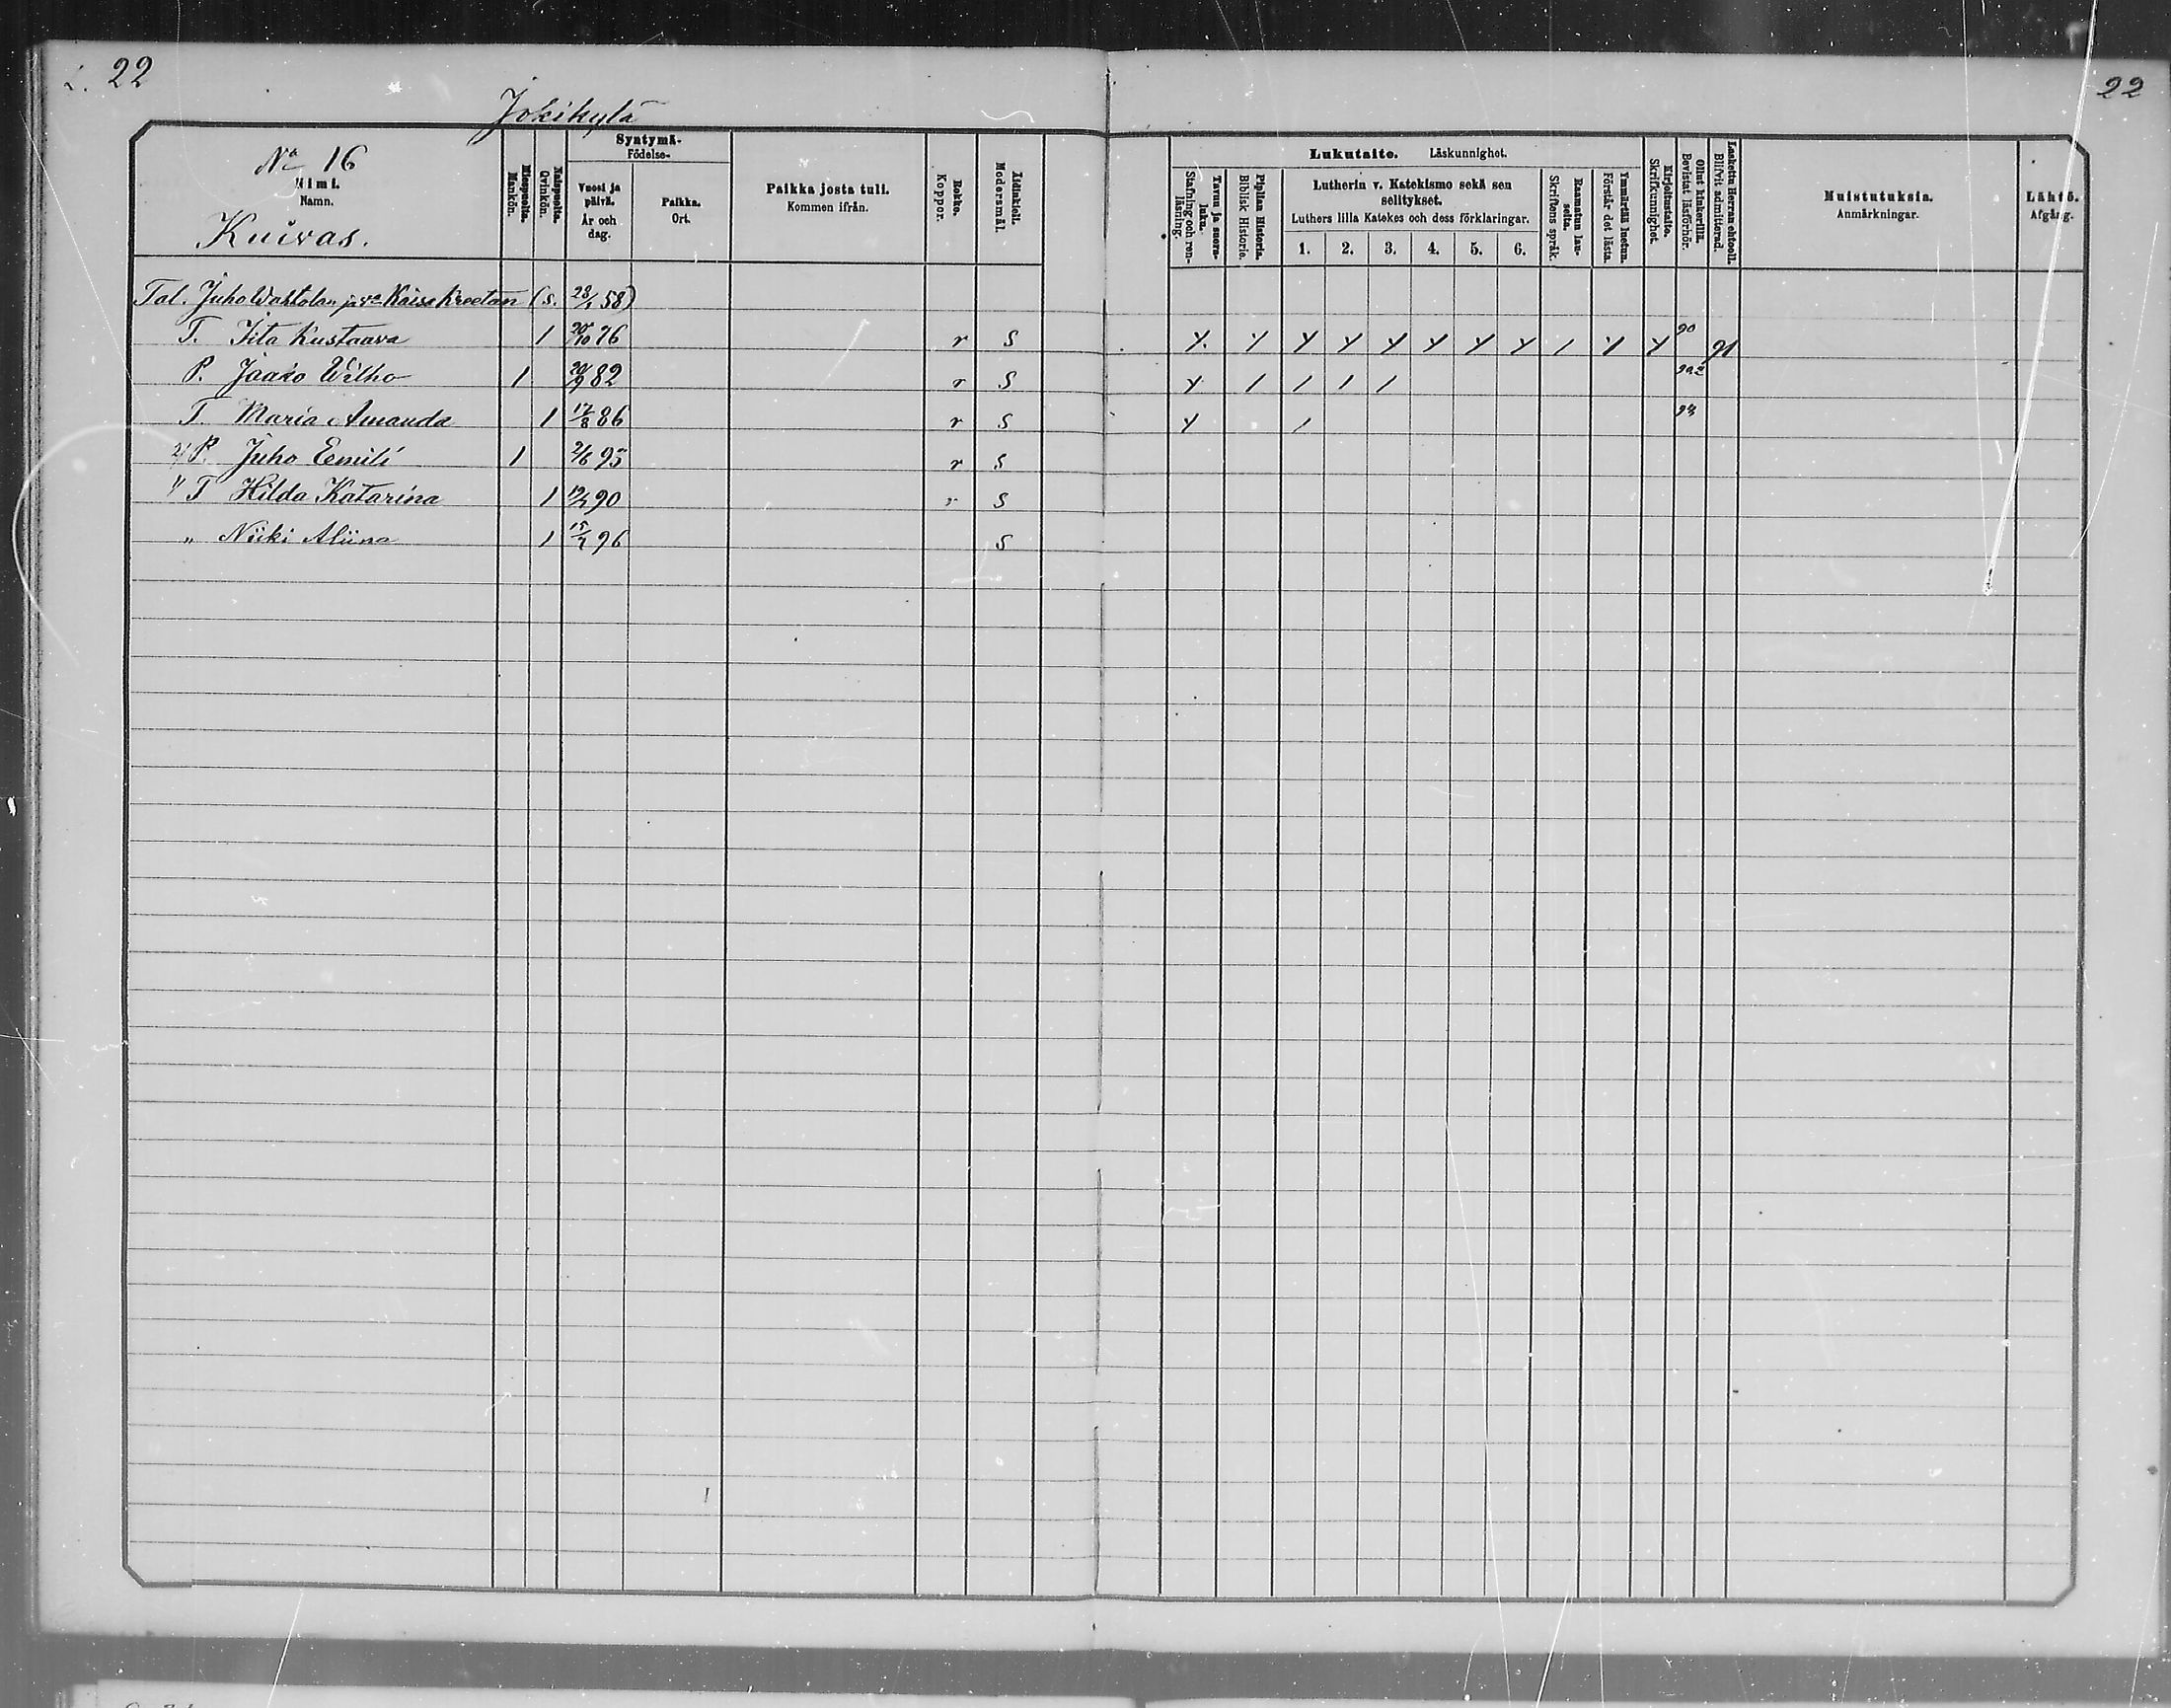 22
22
Jokikylä
No 16
Nimi.
Namn.
Kuivas.
Miespuolia.
Mankön.
Naispuolia.
Qvinkön.
Syntymä-
Födelse-
Vuosi ja
päivä.
År och
dag.
Paikka.
Ort.
Paikka josta tuli.
Kommen ifrån.
Rokko.
Koppor.
Äidinkieli.
Modersmål.
Lukutaito. Läskunnighet.
Tavuu ja suora-
luku.
Stafning och ren-
läsning.
Piplian Historia.
Biblisk Historie.
Lutherin v. Katekismo sekä sen
selitykset.
Luthers lilla Katekes och dess förklaringar.
1. 2. 3. 4. 5. 6.
Raamatun lau-
seita.
Skriftens språk.
Ymmärtää luetun.
Förstår det lästa.
Kirjoitustaito.
Skrifkunnighet.
Ollut kinkerillä.
Bevistat läsförhör.
Laskettu Herran ehtooll.
Blifvit admitterad.
Muistutuksia.
Anmärkningar.
Lähtö.
Afgång.
Tal. Juho Wahtolan ja va Kaisa Kreetan (s. 28/1 58)
T. Iita Kustaava 1 20/10 76 r S Y Y Y Y Y Y Y Y / Y Y 90 91
P. Jaako Wilho 1 20/9 82 r S Y / / / /
T. Maria Amanda 1 17/8 86 r S Y /
P. Juho Eemili 1 2/6 95 r S
T Hilda Katarina 1 90 r S
" Niiki Aliina 1 96 S